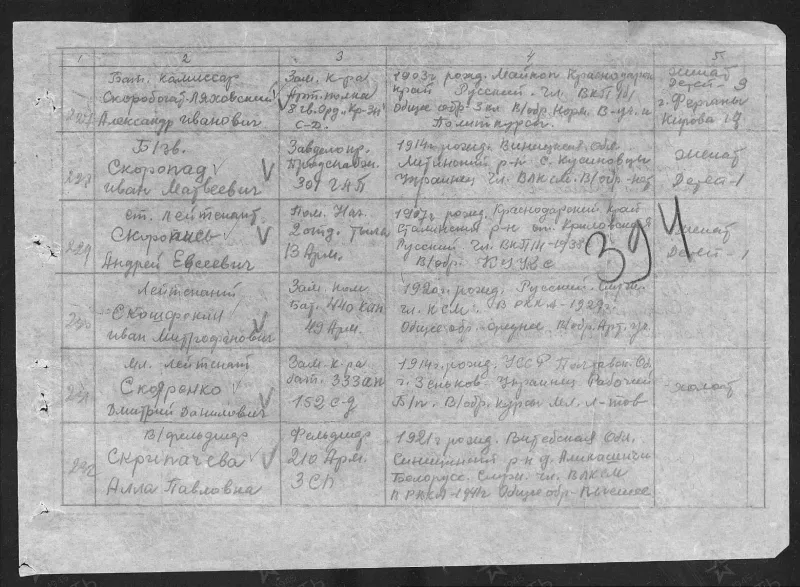 1 2 3 4 5
Бат. комиссар
Скоробогат-Ляховский
Александр Иванович
Зам. к-ра
Арт. полка
8 гв. Орд. "Кр-Зн"
С-Д.
1903г рожд. Майкоп Краснодарск
край Русский. Чл. ВКП(б)
Общее обр. 3 кл В/обр. Норм. В-уч. и
Политкурсы.
женат
Детей-9
г. Ферганы
Кирова 17
228
Б/зв.
Скоропад
Иван Матвеевич
Завделопр.
Продснабж.
301 ГАП
1914г. рожд. Виницкая Обл
Литинский р-н с.
Украинец чл. ВЛКСМ. В/обр-нет
женат
Детей-1
229
ст. лейтенант
Скоропись
Андрей Евсеевич
Пом. Нач.
2 отд. тыла
13 Арм.
1907г рожд. Краснодарский край
Сталинский р-н ст.
Русский. Чл. ВКПб-1938
В/обр. КУКС
женат
Детей-1
394
230
Лейтенант
Иван Митрофанович
Зам. ком.
Бат. 440 кап
49 Арм.
1920г. рожд. Русский.
чл. КСМ. В РККА-
Общее обр. В/обр. Арт. уч.
231
мл. лейтенант
Скоренко
Дмитрий Данилович
Зам. к-ра
бат. 333 ап
152 с-д
1914г. рожд. УССР Полтавск. Об.
г. Зеньков. Украинец Рабочий
Б/п. В/обр. курсы мл. л-тов
холост
232
В/фельдшер
Скрипачева
Алла Павловна
Фельдшер
210 Арм.
ЗСП
1921г рожд. Витебская Обл.
р-н д.
Белорус. Служ. чл. ВЛКСМ
В РККА-1941г Общее обр-